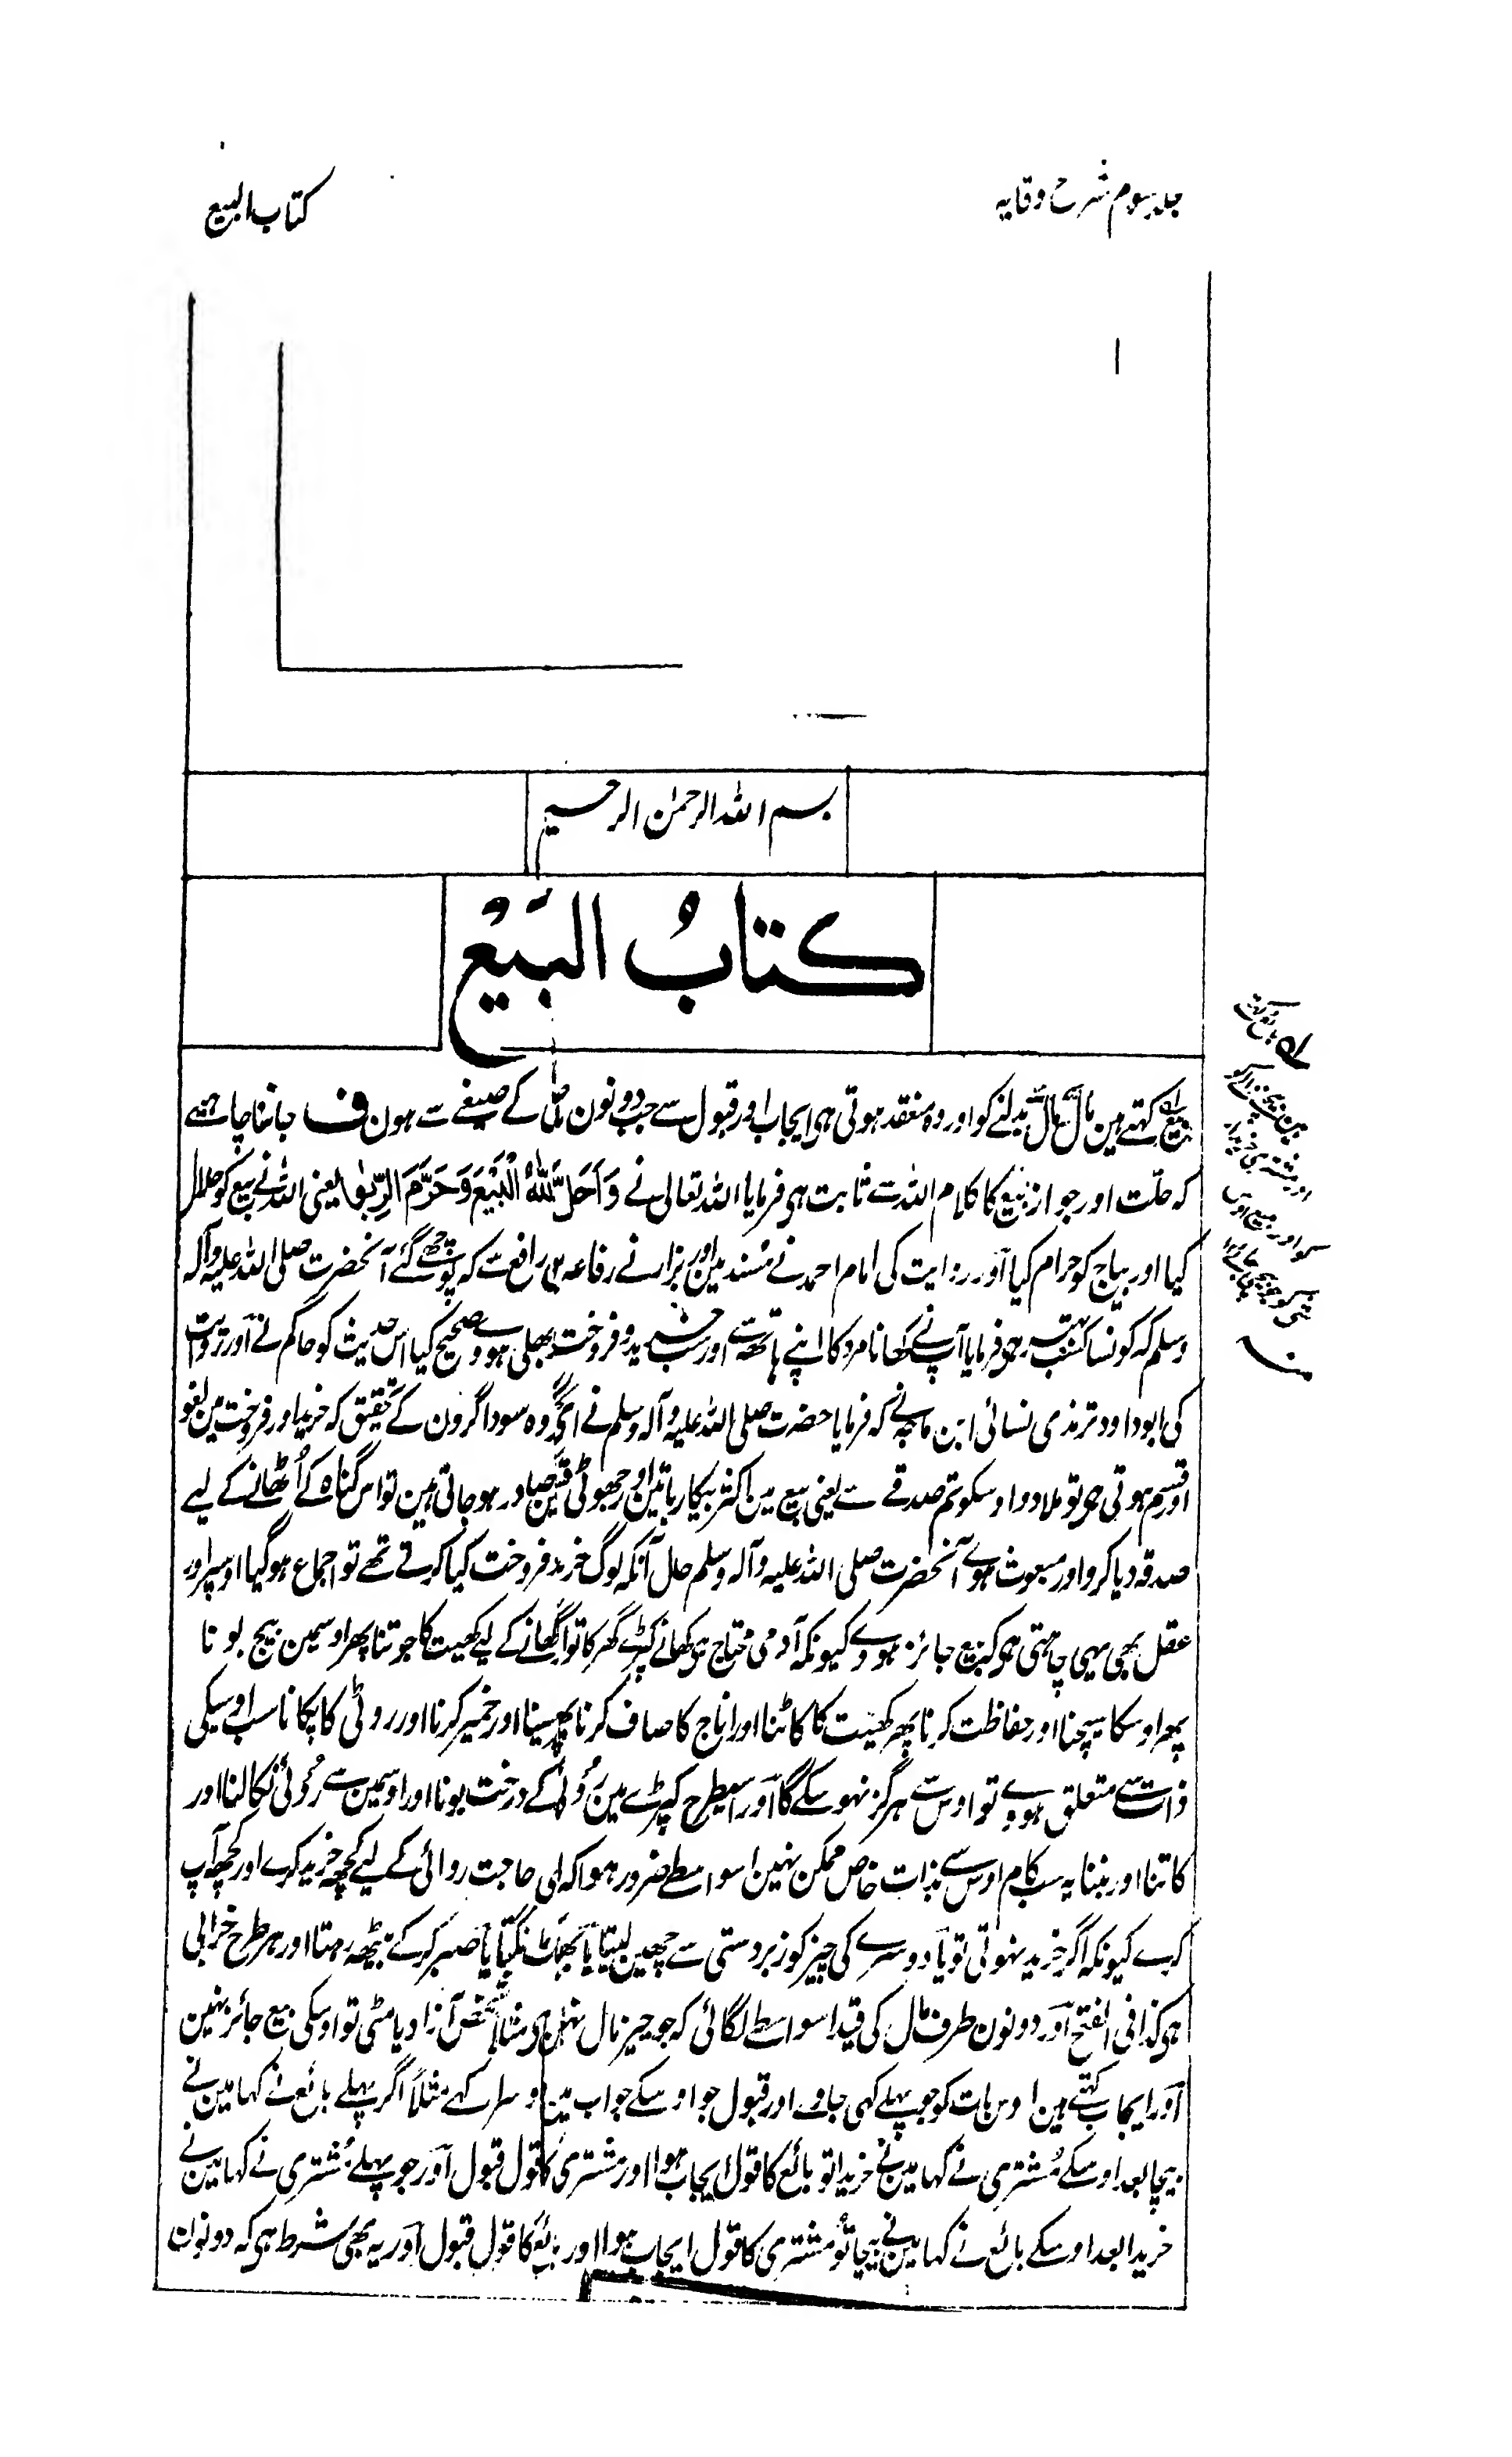 جلد سوم شرح وقایہ
کتاب البیع
بسم اللہ الرحمٰن الرحیم
کتابُ البَیعُ
بیع کہتے ہین مال بمال بدلنے کو اور وہ منعقد ہوتی ہی ایجاب اور قبول سے جب دونون کے صیغے سے ہون ف جاننا چاہیے
کہ حلّت اور جواز بیع کا کلام اللہ سے ثابت ہی فرمایا اللہ تعالی نے وَاَحَلَّ اللّٰهُ الْبَيْعَ وَحَرَّمَ الرِّبٰوا یعنی اللہ نے بیع کو حلال
کیا اور بیاج کو حرام کیا اَور روایت کی امام احمد نے مُسند مین اور بزار نے رفاعہ بن رافع سے کہ پوچھے گئے آنحضرت صلی اللہ علیہ وآلہ
وسلم کہ کونسا کسب بہتر ہی فرمایا آپ نے کھانا مرد کا اپنے ہاتھ سے اور سب خرید و فروخت بھلی ہووے صحیح کیا اس حدیث کو حاکم نے اَور روایت
کی ابوداود ترمذی نسائی ابن ماجہ نے کہ فرمایا حضرت صلی اللہ علیہ وآلہ وسلم نے ای گروہ سوداگرون کے تحقیق کہ خرید اور فروخت مین لغو
اور قسم ہوتی ہی تو ملادو اوسکو تم صدقے سے یعنی بیع مین اکثر بیکار باتین اور جھوٹی قسمین صادر ہو جاتی ہین تو اس گناہ کے اُٹھانے کے لیے
صدقہ دیا کرو اور مبعوث ہوے آنحضرت صلی اللہ علیہ وآلہ وسلم حال آنکہ لوگ خرید فروخت کیا کرتے تھے تو اجماع ہوگیا اوسپر اور
عقل بھی یہی چاہتی ہی کہ بیع جائز ہووے کیونکہ آدمی محتاج ہی کھانے کپڑے گھر کا تو اگر کھانے کے لیے کھیت کا جوتنا پھر اوسمین بیج بونا
پھر اوسکا سیچنا اور حفاظت کرنا پھر کھیت کا کاٹنا اور اناج کا صاف کرنا پھر پیسنا اور خمیر کرنا اور روٹی کا پکانا سب اوسیکی
ذات سے متعلق ہووے تو اوس سے ہرگز نہوسکے گا اَور اسیطرح کپڑے مین رُوئی کے درخت بونا اور اوسمین سے رُوئی نکالنا اور
کاتنا اور بننا یہ سب کام اوس سے بذات خاص ممکن نہین اسواسطے ضرور ہوا کہ حاجت روائی کے لیے کچھ خرید کرے اور کچھ آپ
کرے کیونکہ اگر خرید نہوتی تو یا دوسرے کی چیز کو زبردستی سے چھین لیتا یا بھیک مانگتا یا صبر کرکے بیٹھ رہتا اور ہر طرح خرابی
ہی کذا فی الفتح اَور دونون طرف مال کی قید اسواسطے لگائی کہ جو چیز مال نہین ہی مثلاً شخص آزاد یا مٹی تو اوسکی بیع جائز نہین
اَور ایجاب کہتے ہین اوس بات کو جو پہلے کہی جاوے اور قبول جو اوسکے جواب مین دوسرا کہے مثلاً اگر پہلے بائع نے کہا مین نے
بیچا بعد اوسکے مُشتری نے کہا مین نے خریدا تو بائع کا قول ایجاب ہوا اور مشتری کا قول قبول اَور جو پہلے مُشتری نے کہا مین نے
خریدا بعد اوسکے بائع نے کہا مین نے بیچا تو مُشتری کا قول ایجاب ہوا اور بائع کا قول قبول اَور یہ بھی شرط ہی کہ دونون